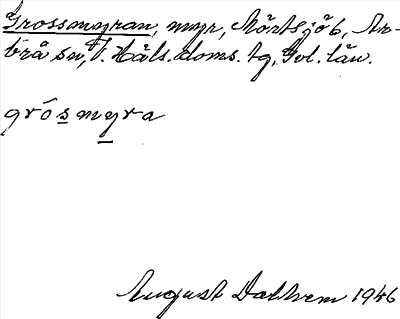 Grossmyran, myr, Mörtsjö b, Ar-
brå sn, V. Häls. doms. tg, Gvl. län.
gró s myra
August Dalhem 1946